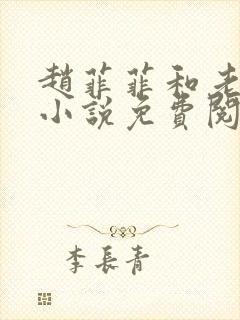 趙菲菲和老
小說免費閱
李長青